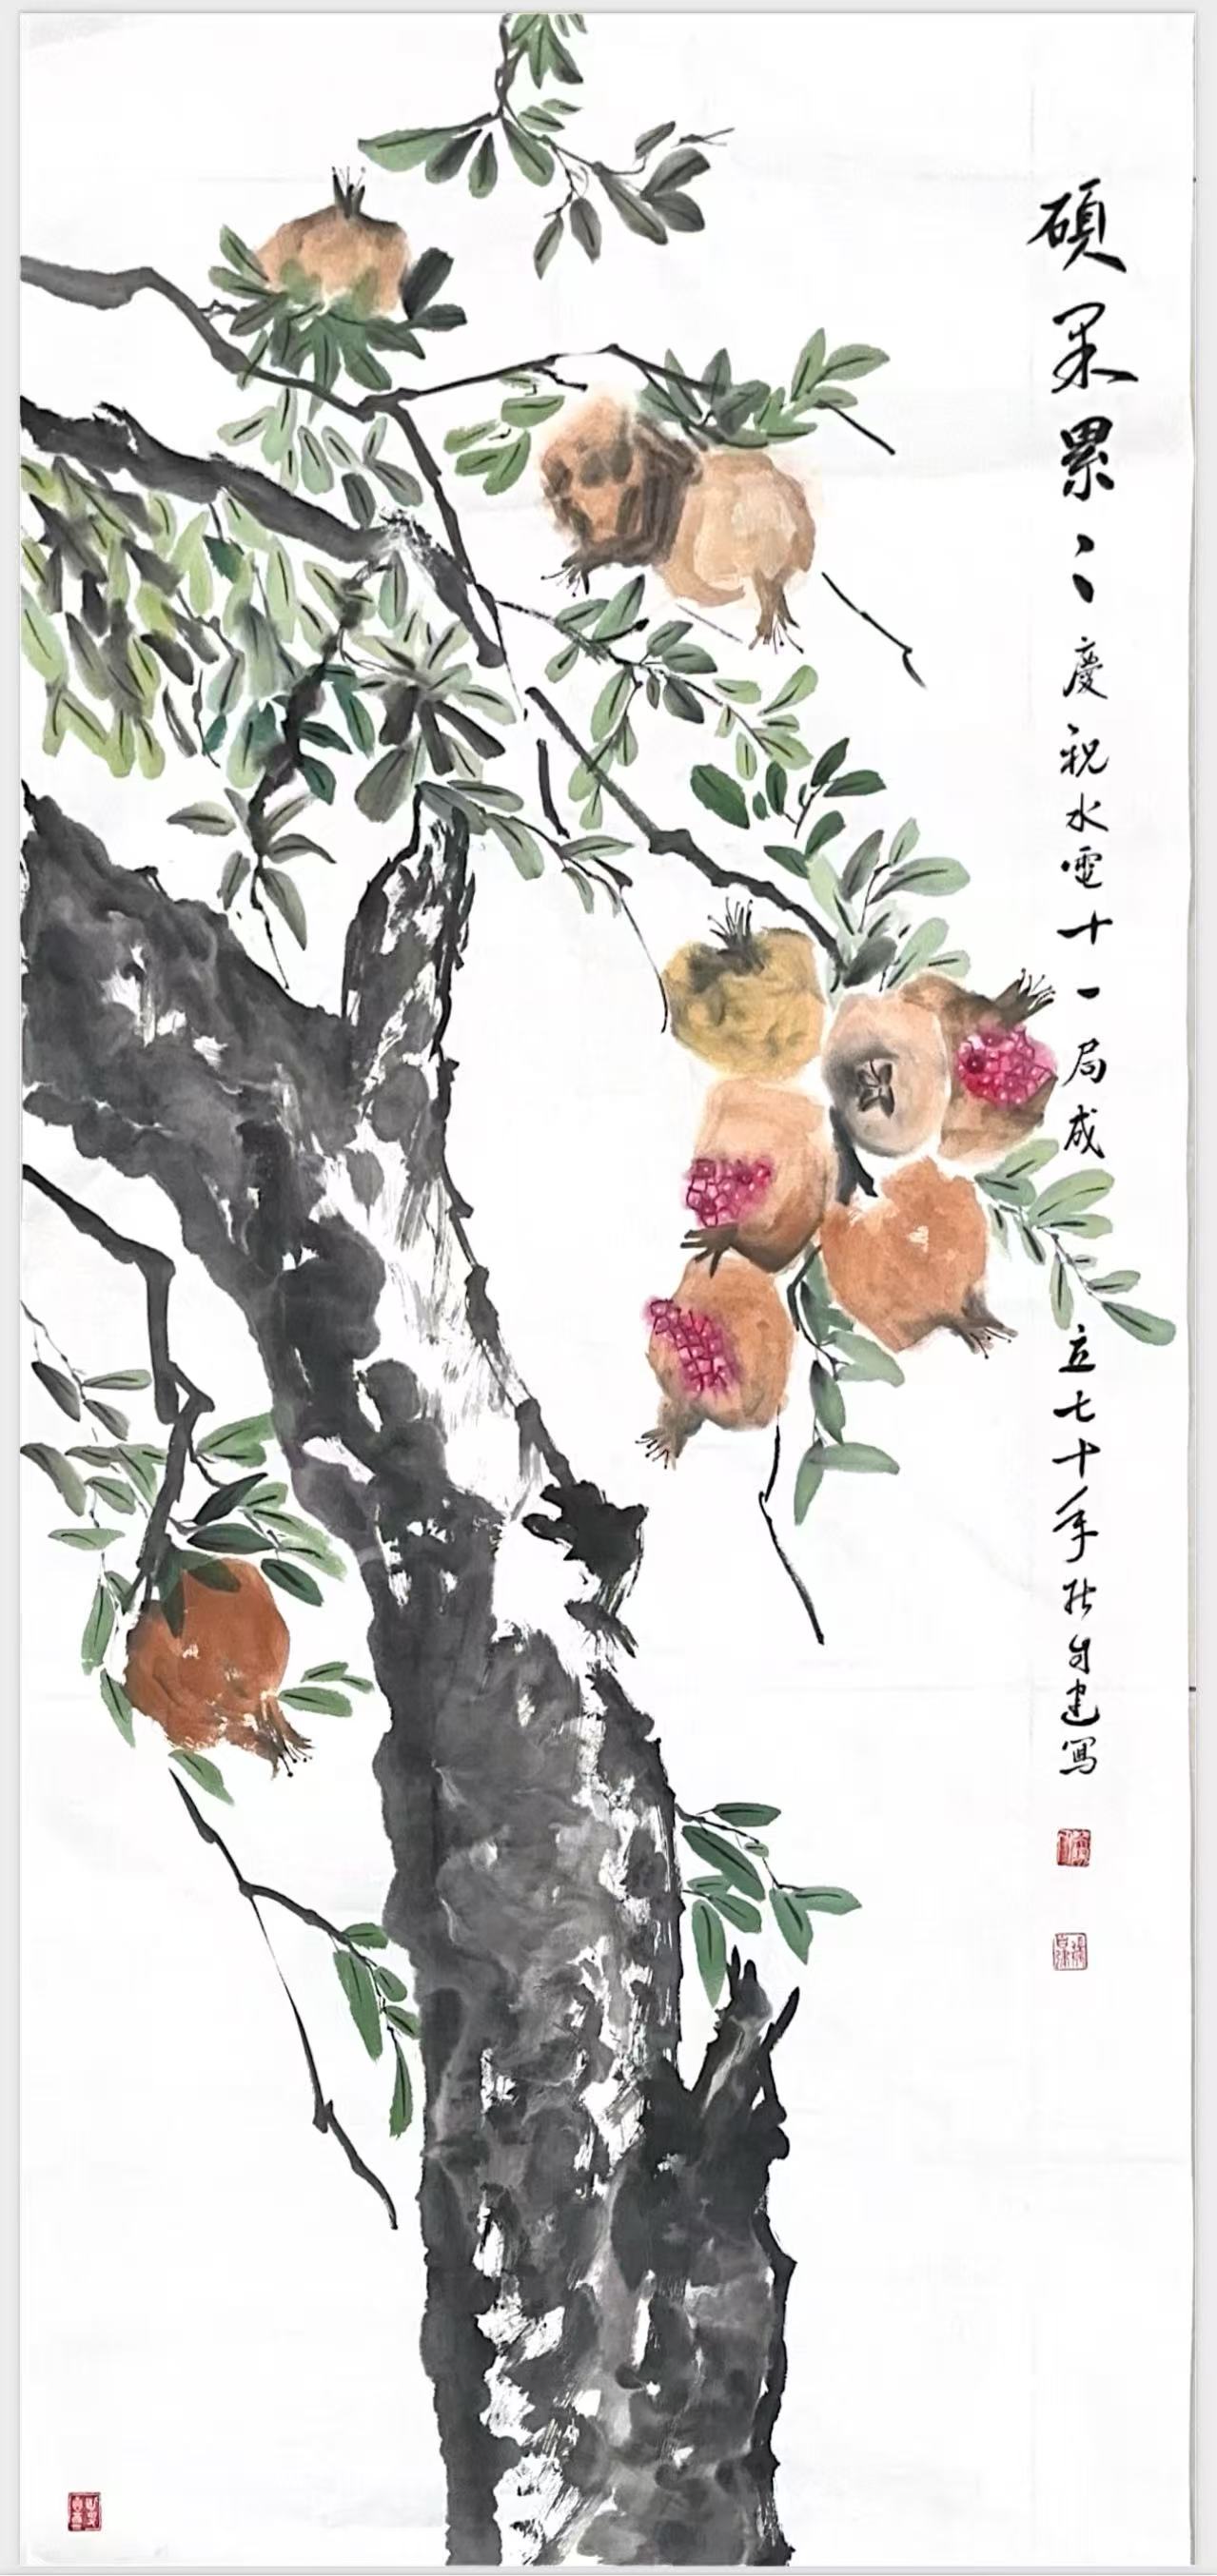 碩果累〻慶祝水電十一局成立七十年秋建寫